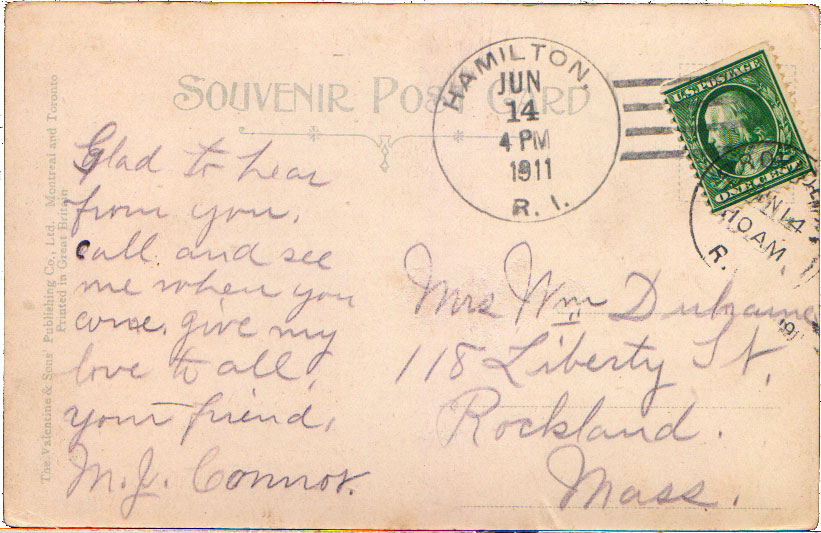 SOUVENIR POST CARD
HAMILTON,
JUN
14
4 PM
1911
R. I.
U.S. POSTAGE
ONE CENT
10 AM
R.
Glad to hear
from you,
call and see
me when you
come. give my
love to all,
your friend,
M. J. Connor.
Mrs Wm
118 Liberty St,
Rockland.
Mass.
The Valentine & Sons' Publishing Co., Ltd. Montreal and Toronto
Printed in Great Britain